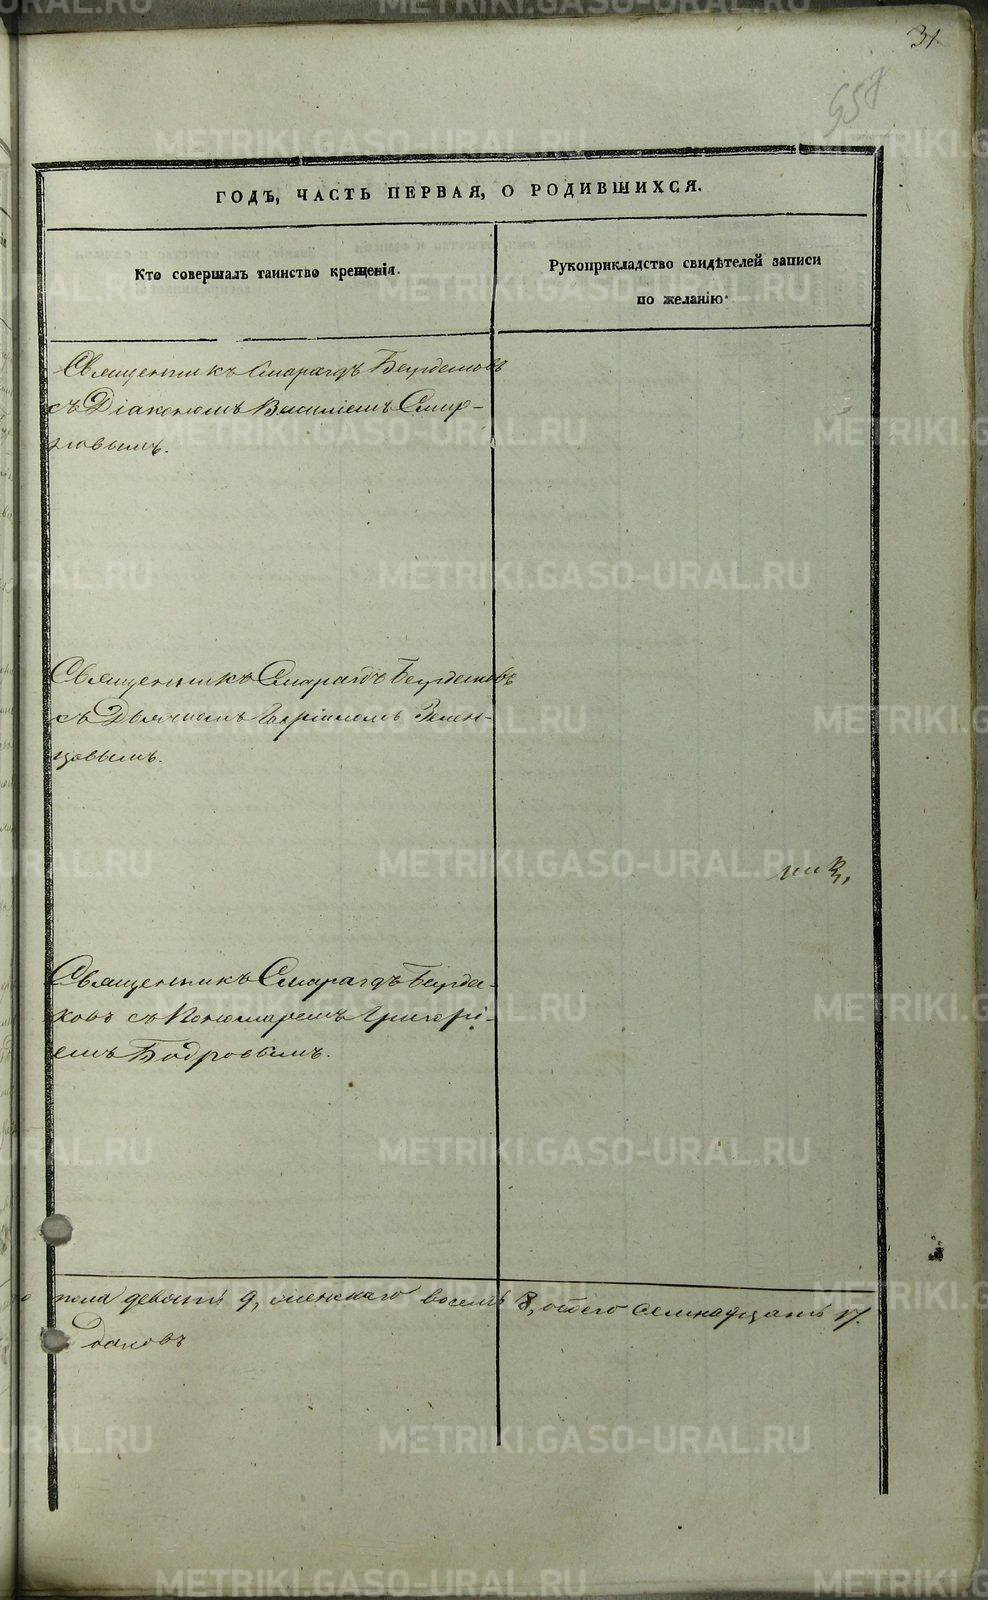 31
ГОДЪ, ЧАСТЬ ПЕРВАЯ, О РОДИВШИХСЯ.
Кто совершалъ таинство крещенія.
Рукоприкладство свидѣтелей записи
по желанію.
Священникъ Смарагдъ
съ Діакономъ Василіемъ Смир-
новымъ.
Священникъ Смарагдъ
съ Дьячкомъ Гавріиломъ Зелен-
цовымъ.
Священникъ Смарагдъ Бурда-
ковъ съ Пономаремъ Григорі-
емъ Бодровымъ.
пола девять 9, женскаго восемь 8, обоего семнадцать 17.
METRIKI.GASO-URAL.RU